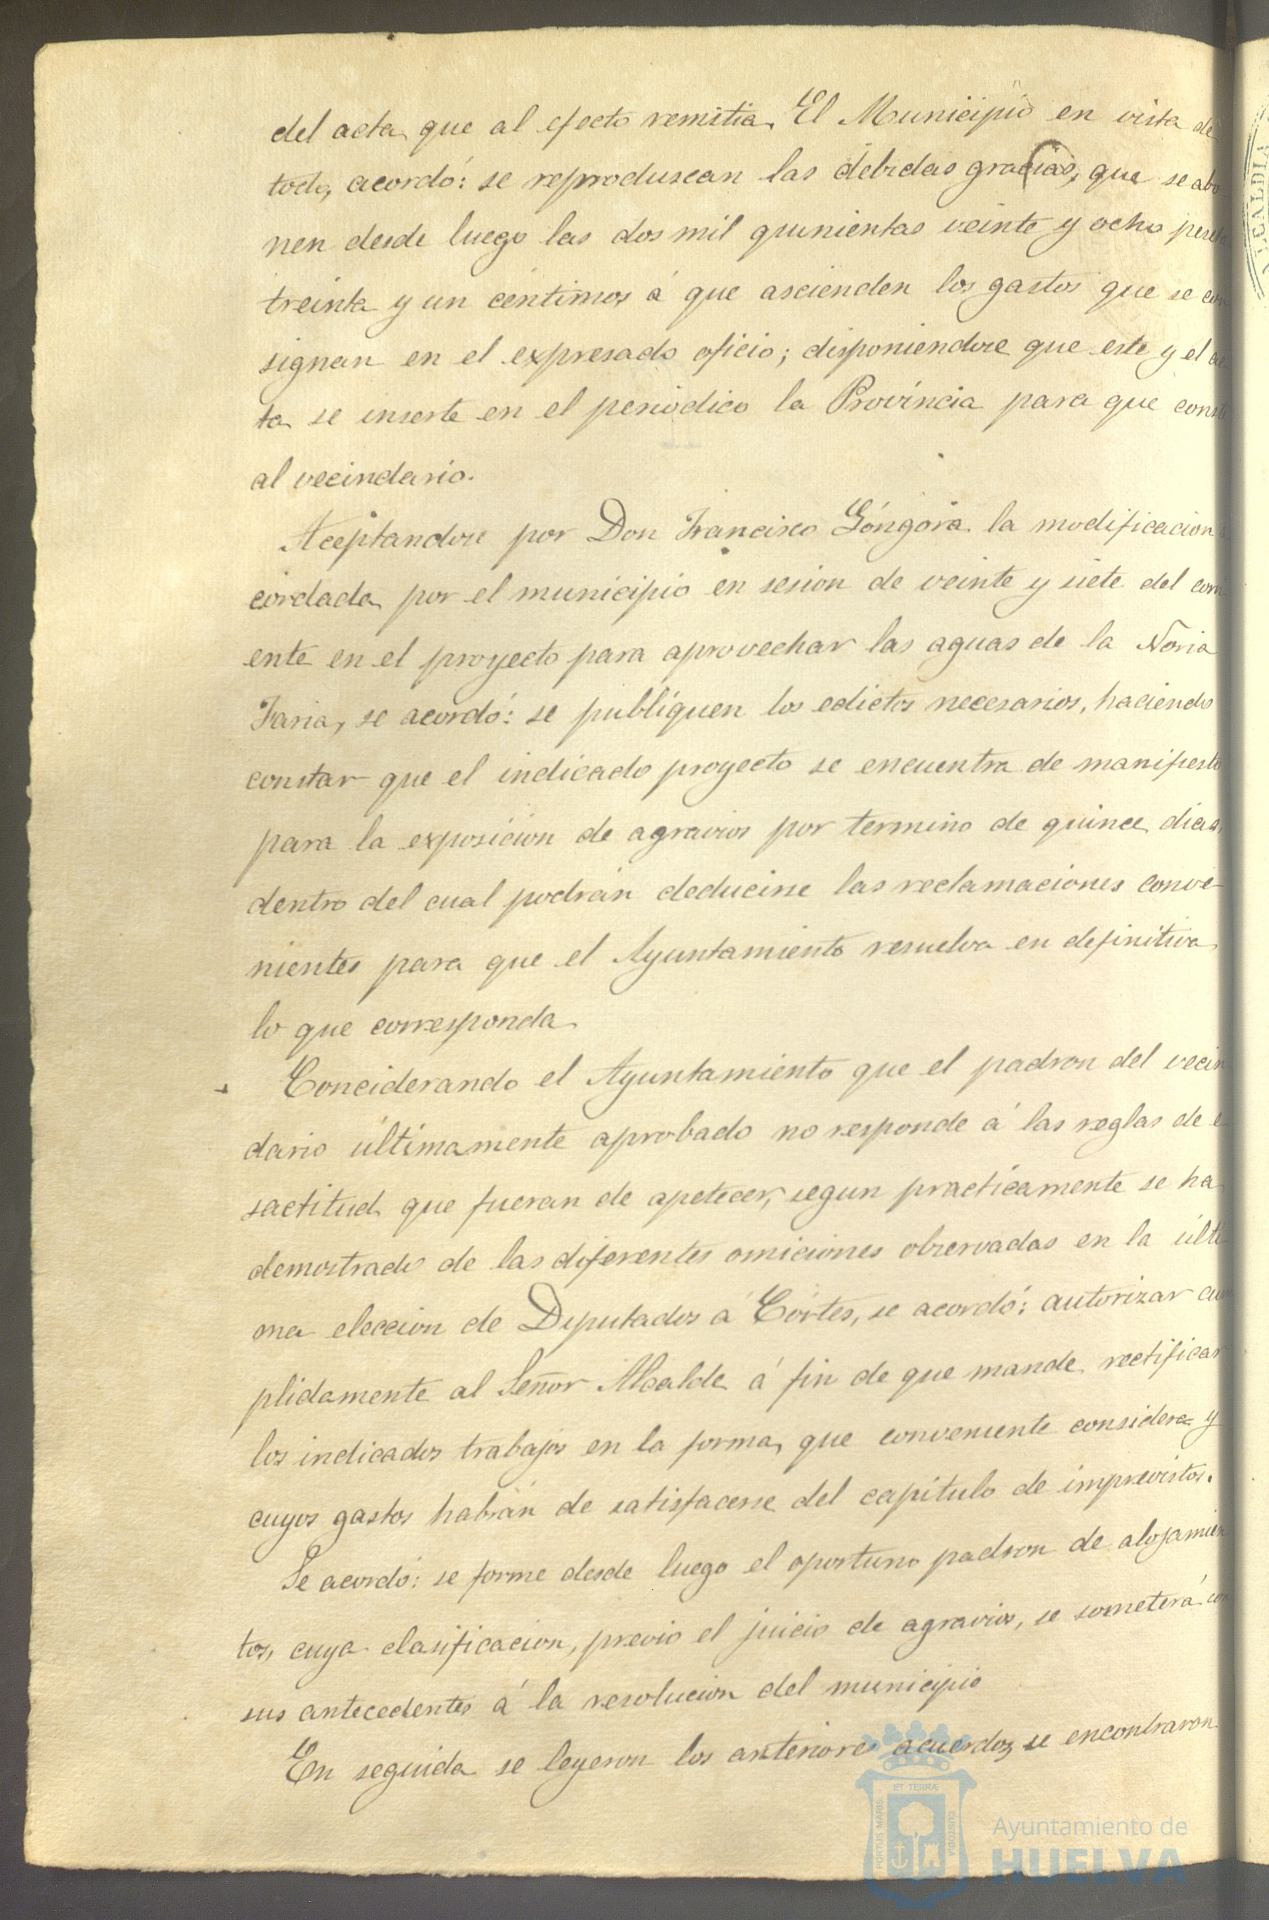 del acta que al efecto remitia. El Municipio en vista de
todo, acordó: se reproduscan las debidas gracias, que se abo-
nen desde luego las dos mil quinientas veinte y ocho peseta
treinta y un céntimos á que ascienden los gastos que se con
signan en el expresado oficio; disponiendose que este y el ac
ta se inserte en el periódico la Província para que conste
al vecindario.
Aceptandose por Don Francisco Góngora la modificacion a
cordada por el municipio en sesion de veinte y siete del corri
ente en el proyecto para aprovechar las aguas de la Noria
Faria, se acordó: se publíquen los edictos necesarios, haciendo
constar que el indicado proyecto se encuentra de manifiesto
para la exposicion de agravios por termino de quince dias,
dentro del cual podrán deducirse las reclamaciones conve-
nientes para que el Ayuntamiento resuelva en definitiva
lo que corresponda.
Conciderando el Ayuntamiento que el padron del vecin
dario últimamente aprobado no responde á las reglas de e
sactitud que fueran de apetecer, segun practicamente se ha
demostrado de las diferentes omiciones observadas en la últi
ma eleccion de Deputados á Córtes, se acordó: autorizar cum
plidamente al Señor Alcalde á fin de que mande rectificar
los indicados trabajos en la forma que conveniente considera y
cuyos gastos habrán de satisfacerse del capítulo de imprevistos.
Se acordó: se forme desde luego el oportuno padron de alojamien
tos, cuya clasificacion, previo el juicio de agravios, se someterá con
sus antecedentes á la resolucion del municipio
En seguida se leyeron los anteriores acuerdos, se encontraron
ALCALDIA
PORTUS MARIS
ET TERRÆ
CUSTODIA
Ayuntamiento de
HUELVA